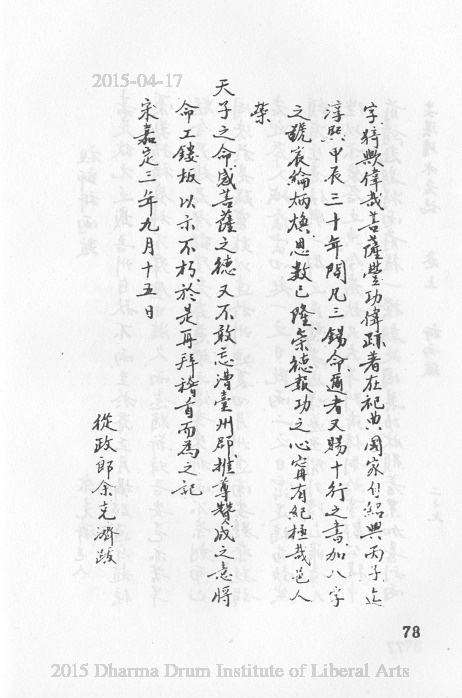 2015-04-17
字猗歟偉哉菩薩豐功偉跡著在祀典國家自紹興丙子迄
淳熙甲辰三十年間凡三錫命邇者又賜十行之書加八字
之號袞綸炳煥恩數已隆崇德報功之心寧有紀極哉邑人
榮
天子之命感菩薩之德又不敢忘漕臺州郡推尊贊成之意將
命工鏤板以示不朽於是再拜稽首而為之記
宋嘉定三年九月十五日
從政郎余克濟跋
78
2015 Dharma Drum Institute of Liberal Arts